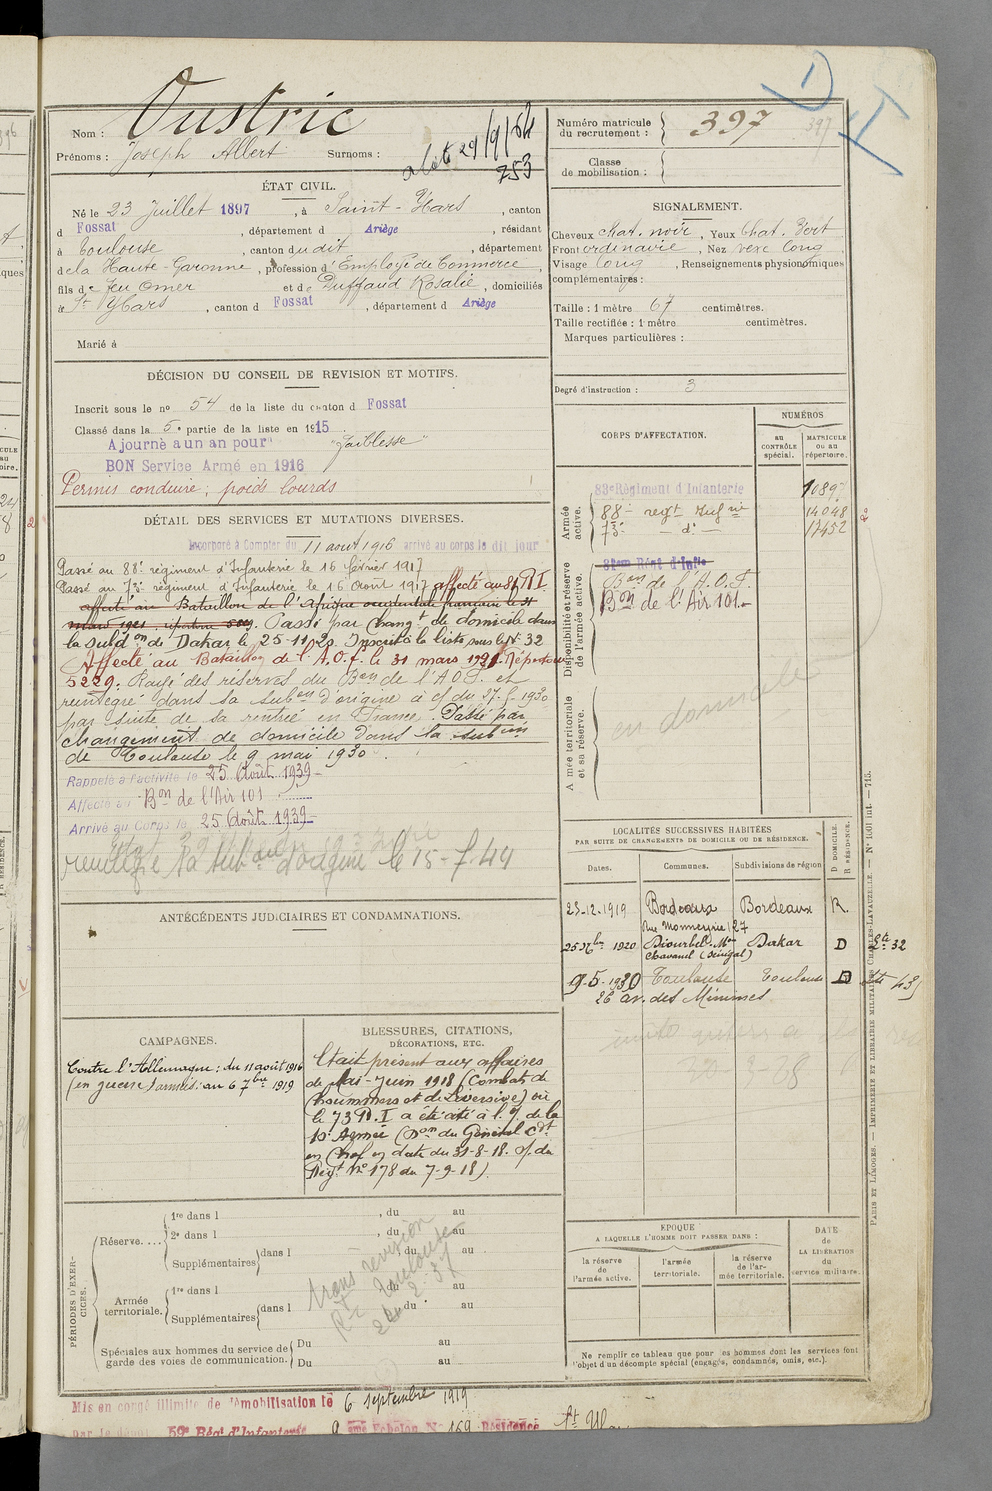 Nom : Oustric
Prénoms : Joseph Albert Surnoms :
29/9/64
753
Numéro matricule du recrutement : 397
397
Classe de mobilisation :
ÉTAT CIVIL.
Né le 23 Juillet 1897, à Saint-Ybars, canton
d Fossat, département d Ariège, résidant
à Toulouse, canton du dit, département
de la Haute-Garonne, profession d'Employé de Commerce,
fils de feu Omer et de Duffaud Rosalie, domiciliés
à St Ybars, canton d Fossat, département d Ariège
Marié à
SIGNALEMENT.
Cheveux chat. noir, Yeux Chat. Vert
Front ordinaire, Nez vexe long
Visage long, Renseignements physionomiques
complémentaires :
Taille : 1 mètre 67 centimètres.
Taille rectifiée : 1 mètre centimètres.
Marques particulières :
Degré d'instruction : 3
DÉCISION DU CONSEIL DE REVISION ET MOTIFS.
Inscrit sous le no 54 de la liste du canton d Fossat
Classé dans la 5e partie de la liste en 1915
Ajourné a un an pour "Faiblesse"
BON Service Armé en 1916
Permis conduire ; poids lourds
DÉTAIL DES SERVICES ET MUTATIONS DIVERSES.
Incorporé à Compter du 11 août 1916 arrivé au corps le dit jour
Passé au 88e régiment d'Infanterie le 16 février 1917
Passé au 73e régiment d'Infanterie le 16 Août 1917 affecté au 81 R I
affecté au Bataillon de l'Afrique occidentale française le 31
mars 1921, répertoire 5229. Passé par Changt de domicile dans
la subdon de Dakar le 25-11-20. Inscrit à la liste sous le No 32
Affecté au Bataillon de l'A.O.F. le 31 mars 1921. Répertoire
5229. Rayé des réserves du Bon de l'A.O.F. et
réintégré dans sa subon d'origine à
par suite de sa rentrée en France. Passé par
changement de domicile dans la subon
de Toulouse le 9 mai 1930.
Rappelé à l'activité le 25 Août 1939
Affecté au Bon de l'Air 101
Arrivé au Corps le 25 Août 1939
d'origine le 15-7-44
CORPS D'AFFECTATION.
NUMÉROS
au CONTRÔLE spécial.
MATRICULE ou au répertoire.
Armée active.
83e Régiment d'Infanterie 10897
88e regt Infrie 14048
73e — do — 17452
Disponibilité et réserve de l'armée active.
81em Rént d'Inftie
Bon de l'A.O.F.
Bon de l'Air 101
Armée territoriale et sa réserve.
en domicile
LOCALITÉS SUCCESSIVES HABITÉES
PAR SUITE DE CHANGEMENTS DE DOMICILE OU DE RÉSIDENCE.
Dates. Communes. Subdivisions de région
D DOMICILE. R RÉSIDENCE.
23-12-1919 Bordeaux Bordeaux R.
25 9bre 1920 Diourbel Mon Chavanel (Sénégal) Dakar D Lte 32
9-5-1930 Toulouse Toulouse D
26 av. des Minimes
ANTÉCÉDENTS JUDICIAIRES ET CONDAMNATIONS.
CAMPAGNES.
Contre l'Allemagne : du 11 août 1916
(en guerre) armées : au 6 7bre 1919
BLESSURES, CITATIONS,
DÉCORATIONS, ETC.
Était présent aux affaires
de Mai-Juin 1918 (Combats de
où
le 73 R.I a été cité à l'O. de la
10e Armée (Don du Général Cdt
en Chef en date du 31-8-18. O. du
Régt No 178 du 7-9-18)
PÉRIODES D'EXERCICES.
Réserve....
1re dans l , du au
2e dans l , du au
Supplémentaires dans l , du au
Armée territoriale.
1re dans l du au
Supplémentaires dans l du au
Spéciales aux hommes du service de garde des voies de communication.
Du au
Du au
trans révision
Toulouse
ÉPOQUE
A LAQUELLE L'HOMME DOIT PASSER DANS :
la réserve de l'armée active.
l'armée territoriale.
la réserve de l'armée territoriale.
DATE de LA LIBÉRATION du service militaire.
Ne remplir ce tableau que pour les hommes dont les services font
l'objet d'un décompte spécial (engagés, condamnés, omis, etc.).
PARIS ET LIMOGES. — IMPRIMERIE ET LIBRAIRIE MILITAIRES CHARLES-LAVAUZELLE. — No 1001 int. — 715.
Mis en congé illimité de démobilisation le 6 septembre 1919
par le dépôt 59e Régt d'Infanterie 9 ème Echelon No 169 Résidence